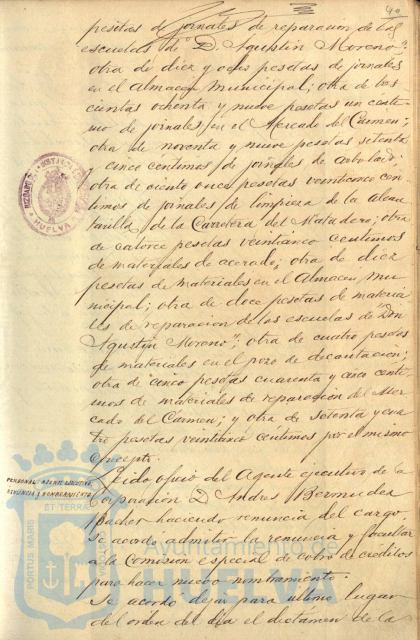 pesetas de jornales de reparación de las
escuelas de "D. Agustin Moreno";
otra de diez y ocho pesetas de jornales
en el almacen municipal; otra de dos
cientas ochenta y nueve pesetas un centi-
mo de jornales en el Mercado del Carmen;
otra de noventa y nueve pesetas setenta
y cinco centimos de jornales de arbolado;
otra de ciento once pesetas veinticinco cen-
timos de jornales de limpieza de la alcan-
tarilla de la Carretera del Matadero; otra
de catorce pesetas veinticinco centimos
de materiales de acerado; otra de diez
pesetas de materiales en el Almacén mu-
nicipal; otra de doce pesetas de materia-
les de reparacion de las escuelas de "Don
Agustin Moreno"; otra de cuatro pesetas
de materiales en el pozo de decantación;
otra de cinco pesetas cuarenta y cinco centi-
mos de materiales de reparacion del Mer-
cado del Carmen; y otra de setenta y cua-
tro pesetas veinticinco centimos por el mismo
concepto.
Leido oficio del Agente ejecutivo de la
Corporación D. Andres Bermudez
haciendo renuncia del cargo
se acordó admitir la renuncia y facultar
a la Comision especial de cobro de créditos
para hacer nuevo nombramiento.
Se acordó dejar para ultimo lugar
del orden del dia el dictamen de la
PERSONAL. AGENTE EJECUTIVO
RENUNCIA Y NOMBRAMIENTO
HUELVA
PORTUS MARIS
ET TERRAE
Ayuntamiento de
HUELVA